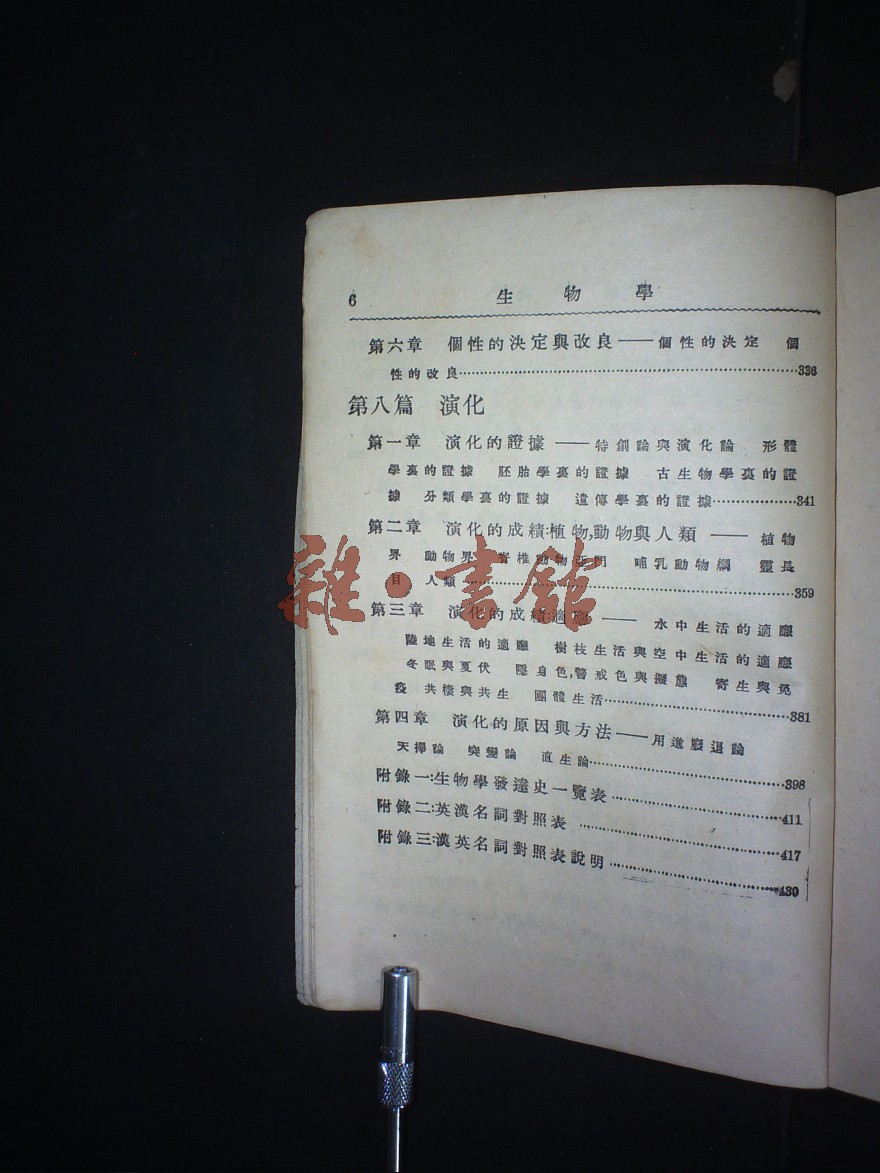 6 生物學
第六章 個性的決定與改良——個性的決定 個
性的改良……336
第八篇 演化
第一章 演化的證據——特創論與演化論 形體
學裏的證據 胚胎學裏的證據 古生物學裏的證
據 分類學裏的證據 遺傳學裏的證據……341
第二章 演化的成績:植物,動物與人類——植物
界 動物界 脊椎動物亞門 哺乳動物綱 靈長
目 人類……359
第三章 演化的成績:適應——水中生活的適應
陸地生活的適應 樹枝生活與空中生活的適應
冬眠與夏伏 隱身色,警戒色與擬態 寄生與免
疫 共棲與共生 團體生活……381
第四章 演化的原因與方法——用進廢退論
天擇論 突變論 直生論……398
附錄一:生物學發達史一覽表……411
附錄二:英漢名詞對照表……417
附錄三:漢英名詞對照表說明……430
雜·書館